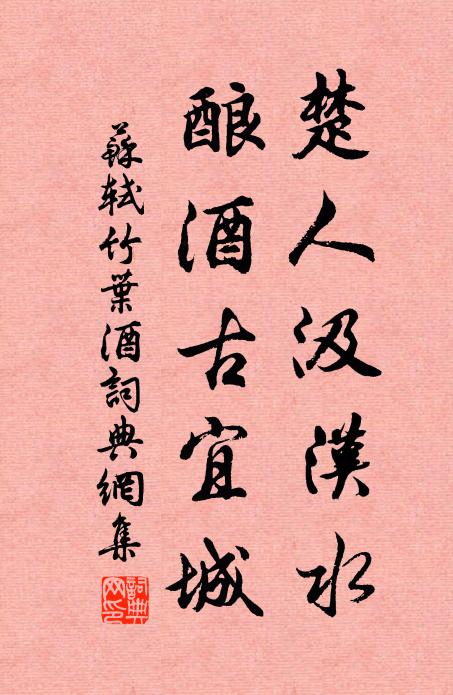 楚人汲漢水
酿酒古宜城
蘇軾竹葉酒詞典網集
詞典網印